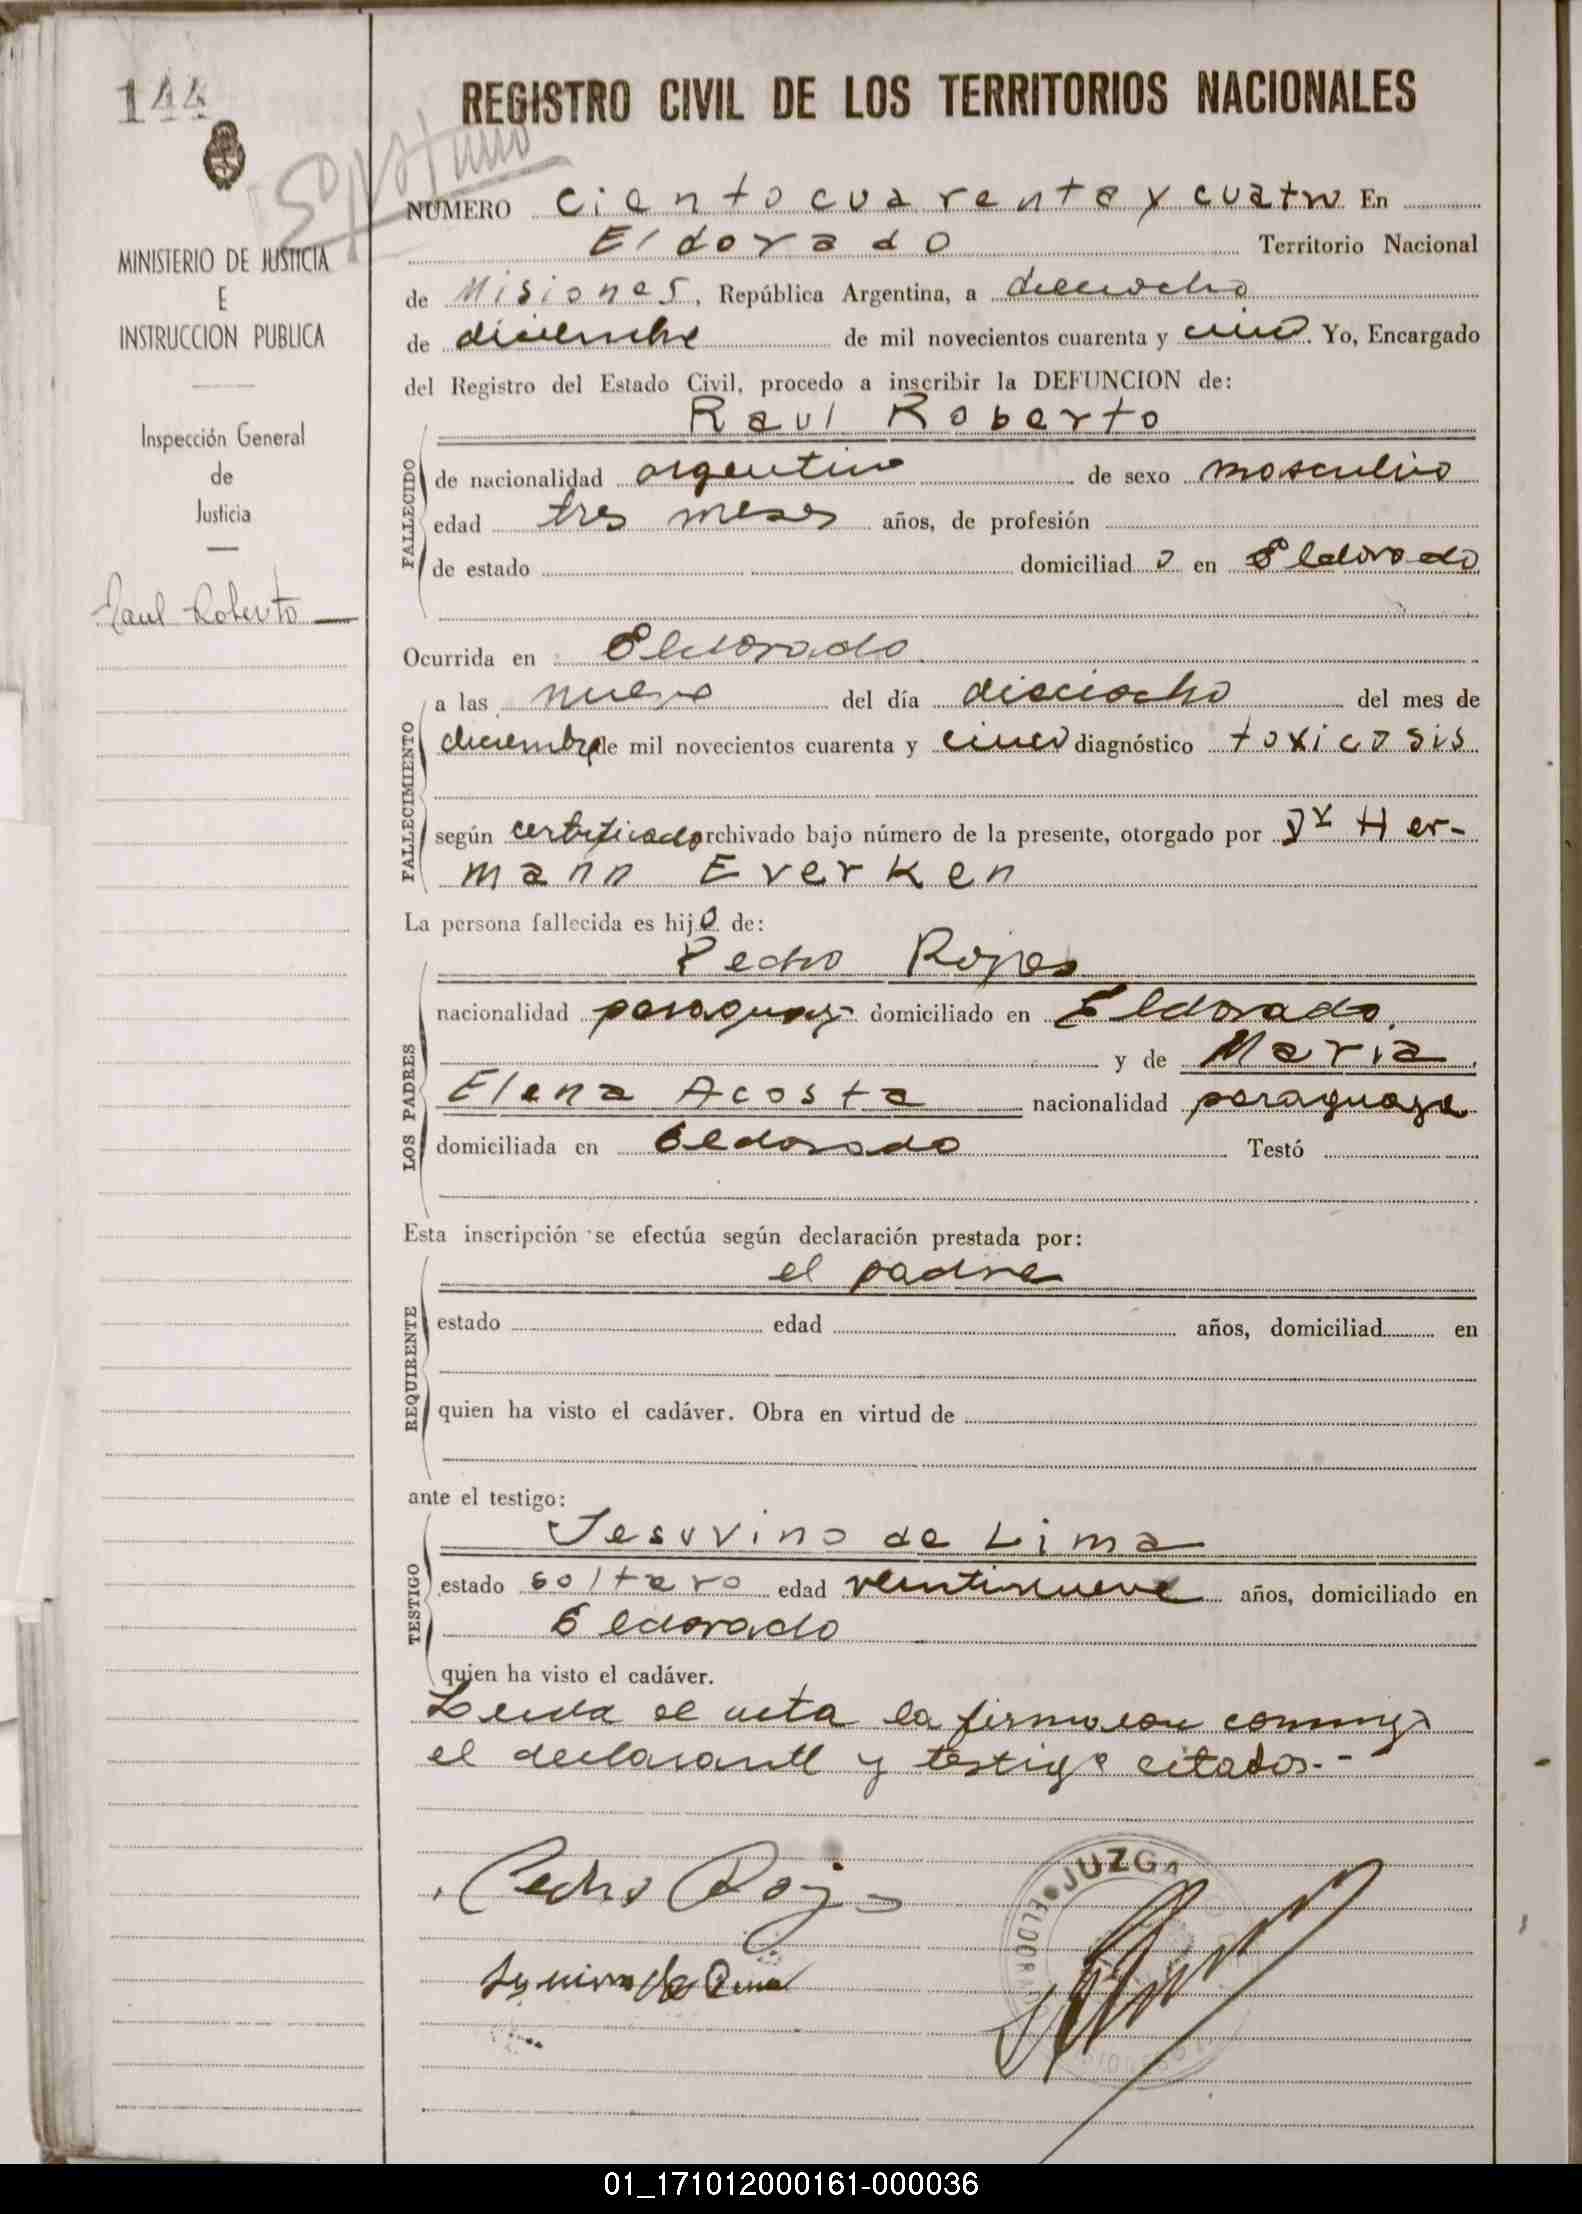 144
REGISTRO CIVIL DE LOS TERRITORIOS NACIONALES
NUMERO Ciento cuarenta y cuatro En
Eldorado Territorio Nacional
de Misiones, República Argentina, a dieciocho
de diciembre de mil novecientos cuarenta y cinco. Yo, Encargado
del Registro del Estado Civil, procedo a inscribir la DEFUNCION de:
MINISTERIO DE JUSTICIA
E
INSTRUCCION PUBLICA
Inspección General
de
Justicia
Raul Roberto
FALLECIDO
Raul Roberto
de nacionalidad argentino de sexo masculino
edad tres meses años, de profesión
de estado domiciliad o en Eldorado
Ocurrida en Eldorado
FALLECIMIENTO
a las nueve del día dieciocho del mes de
diciembre de mil novecientos cuarenta y cinco diagnóstico toxicosis
según certificado archivado bajo número de la presente, otorgado por Dr Her-
mann Everken
La persona fallecida es hijo de:
LOS PADRES
Pedro Rojas
nacionalidad paraguay- domiciliado en Eldorado.
y de Maria
Elena Acosta nacionalidad paraguaya
domiciliada en Eldorado Testó
Esta inscripción se efectúa según declaración prestada por:
REQUIRENTE
el padre
estado edad años, domiciliad en
quien ha visto el cadáver. Obra en virtud de
ante el testigo:
TESTIGO
Jesuvino de Lima
estado soltero edad veintinueve años, domiciliado en
Eldorado
quien ha visto el cadáver.
Leida el acta la firmaron conmigo
el declarante y testigo citados.-
Pedro Rojas
JUZGA
ELDORADO
01_171012000161-000036